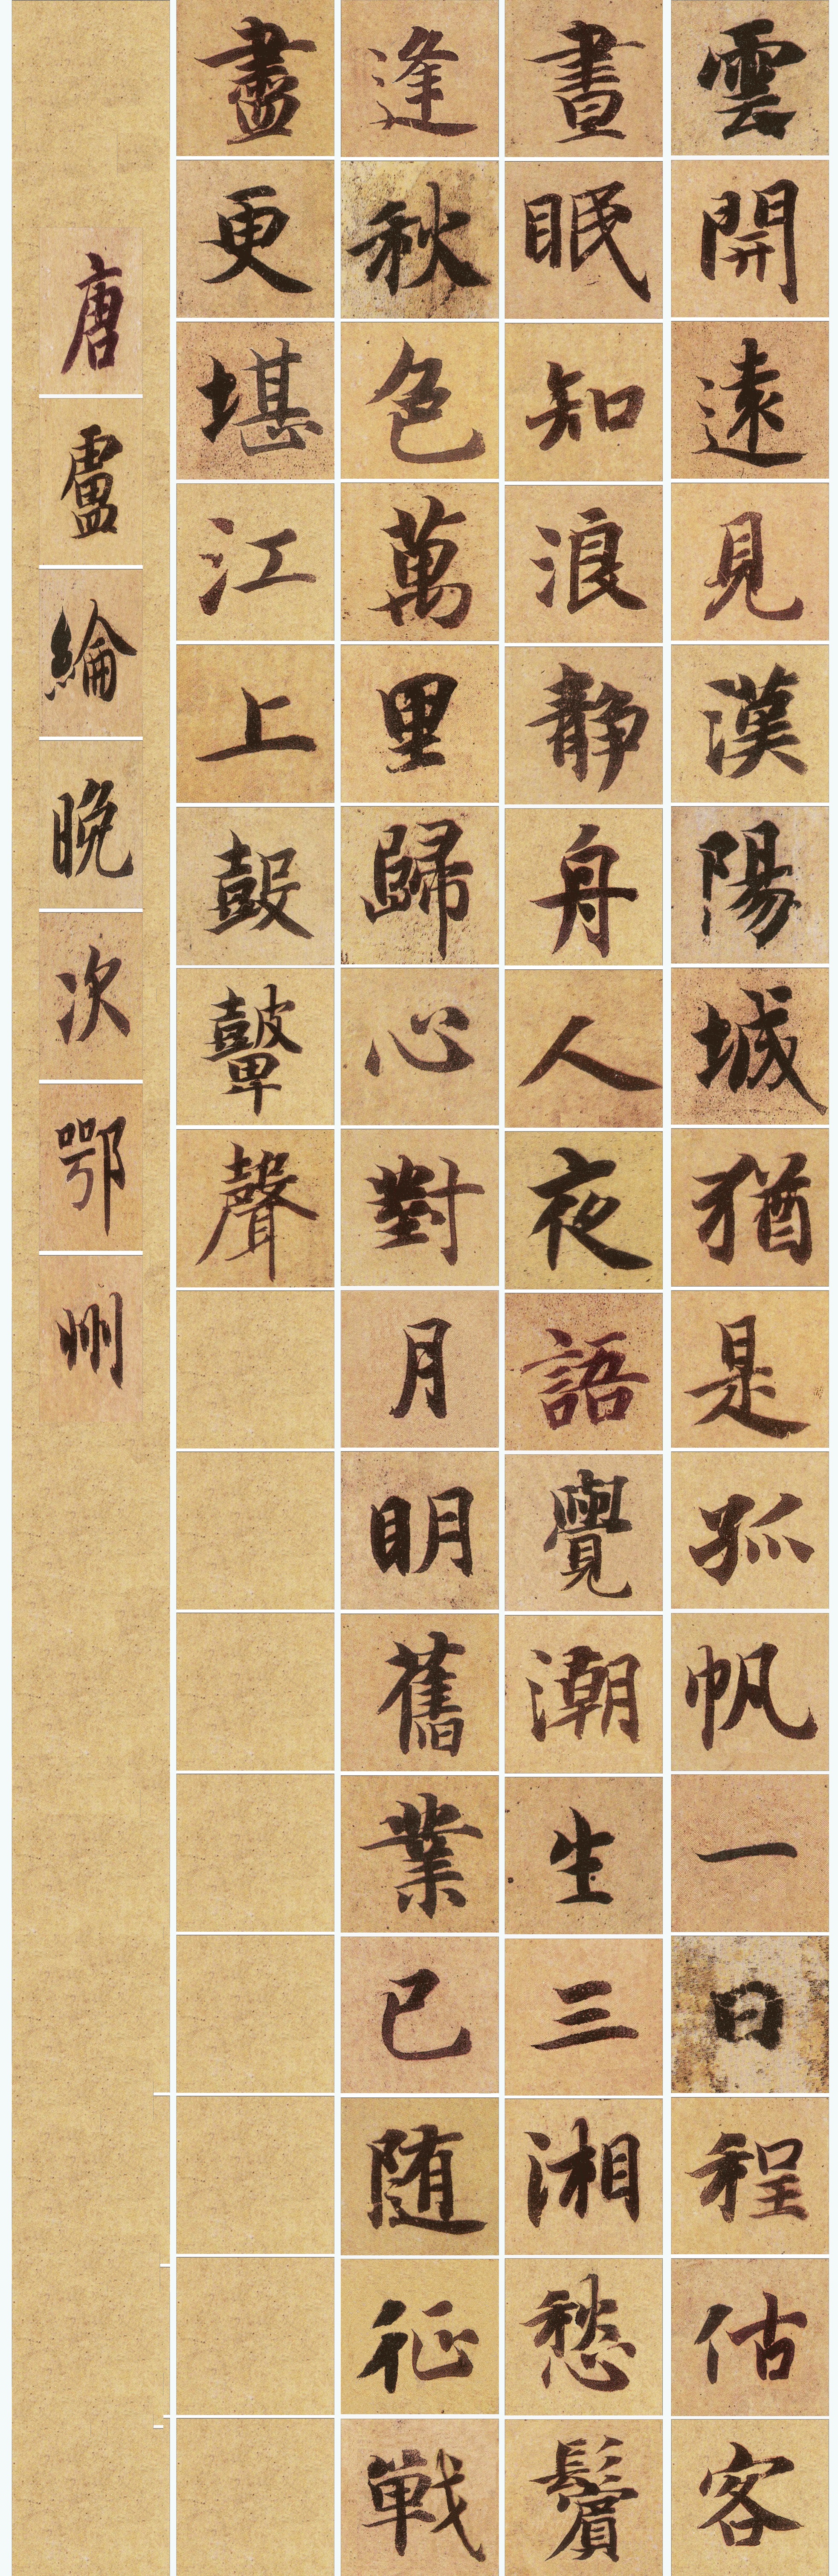 雲開遠見漢陽城猶是孤帆一日程估客
晝眠知浪静舟人夜語覺潮生三湘愁鬢
逢秋色萬里歸心對月明舊業已随征戦
盡更堪江上鼓鼙聲
唐盧綸晚次鄂州